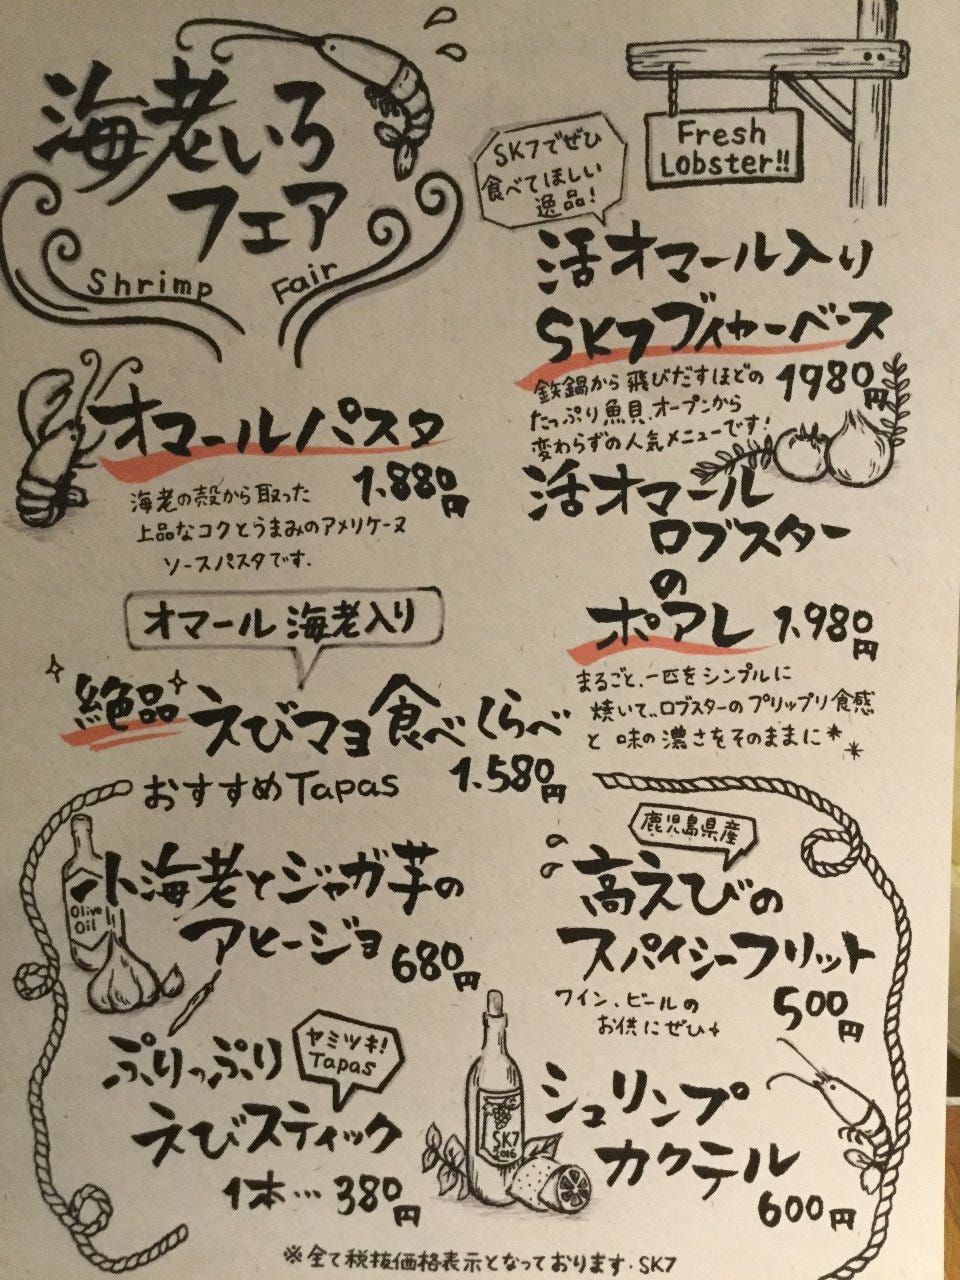 海老いろ
フェア
Shrimp Fair
オマールパスタ
1,880円
海老の殻から取った
上品なコクとうまみのアメリケーヌ
ソースパスタです.
オマール海老入り
絶品えびマヨ食べくらべ
1,580円
SK7でぜひ
食べてほしい
逸品!
Fresh
Lobster!!
活オマール入り
SK7ブイヤーベース
1980円
鉄鍋から飛びだすほどの
たっぷり魚貝、オープンから
変わらずの人気メニューです!
活オマール
ロブスター
の
ポアレ 1,980円
まるごと、一匹をシンプルに
焼いて、ロブスターのプリップリ食感
と味の濃さをそのままに
おすすめTapas
Olive
Oil
小海老とジャガ芋の
アヒージョ 680円
ぷりっぷり
ヤミツキ!
Tapas
えびスティック
1本…380円
鹿児島県産
高えびの
スパイシーフリット
500円
ワイン、ビールの
お供にぜひ
SK7
2016
シュリンプ
カクテル
600円
※全て税抜価格表示となっております・SK7